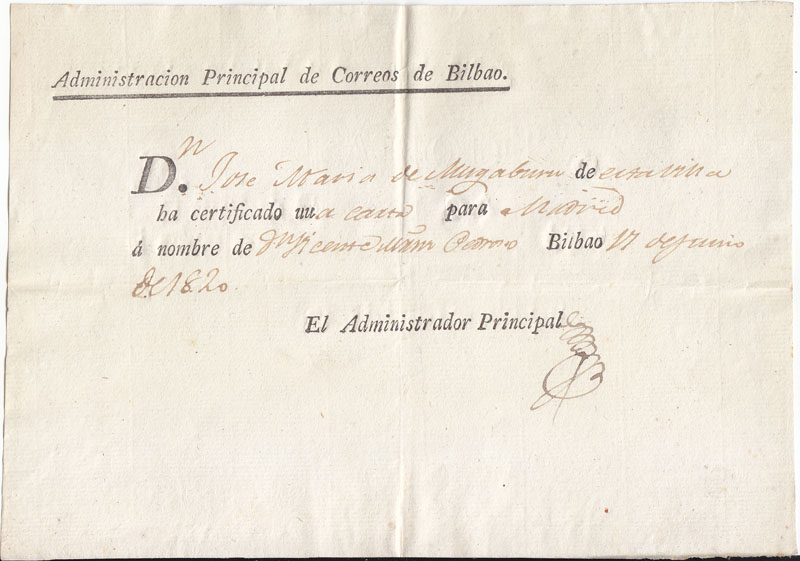 Administracion Principal de Correos de Bilbao.
D.n Jose Maria de Mugaburu de esta villa
ha certificado una carta para Madrid
á nombre de Dn Vicente Bilbao 17 de Junio
de 1820.
El Administrador Principal